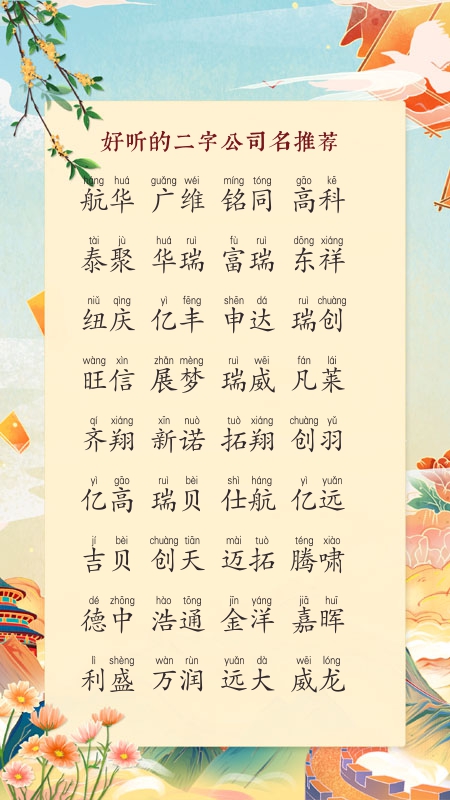 好听的二字公司名推荐
háng huá guǎng wéi míng tóng gāo kē
航华 广维 铭同 高科
tài jù huá ruì fù ruì dōng xiáng
泰聚 华瑞 富瑞 东祥
niǔ qìng yì fēng shēn dá ruì chuàng
纽庆 亿丰 申达 瑞创
wàng xìn zhǎn mèng ruì wēi fán lái
旺信 展梦 瑞威 凡莱
qí xiáng xīn nuò tuò xiáng chuàng yǔ
齐翔 新诺 拓翔 创羽
yì gāo ruì bèi shì háng yì yuǎn
亿高 瑞贝 仕航 亿远
jí bèi chuàng tiān mài tuò téng xiào
吉贝 创天 迈拓 腾啸
dé zhōng hào tōng jīn yáng jiā huī
德中 浩通 金洋 嘉晖
lì shèng wàn rùn yuǎn dà wēi lóng
利盛 万润 远大 威龙